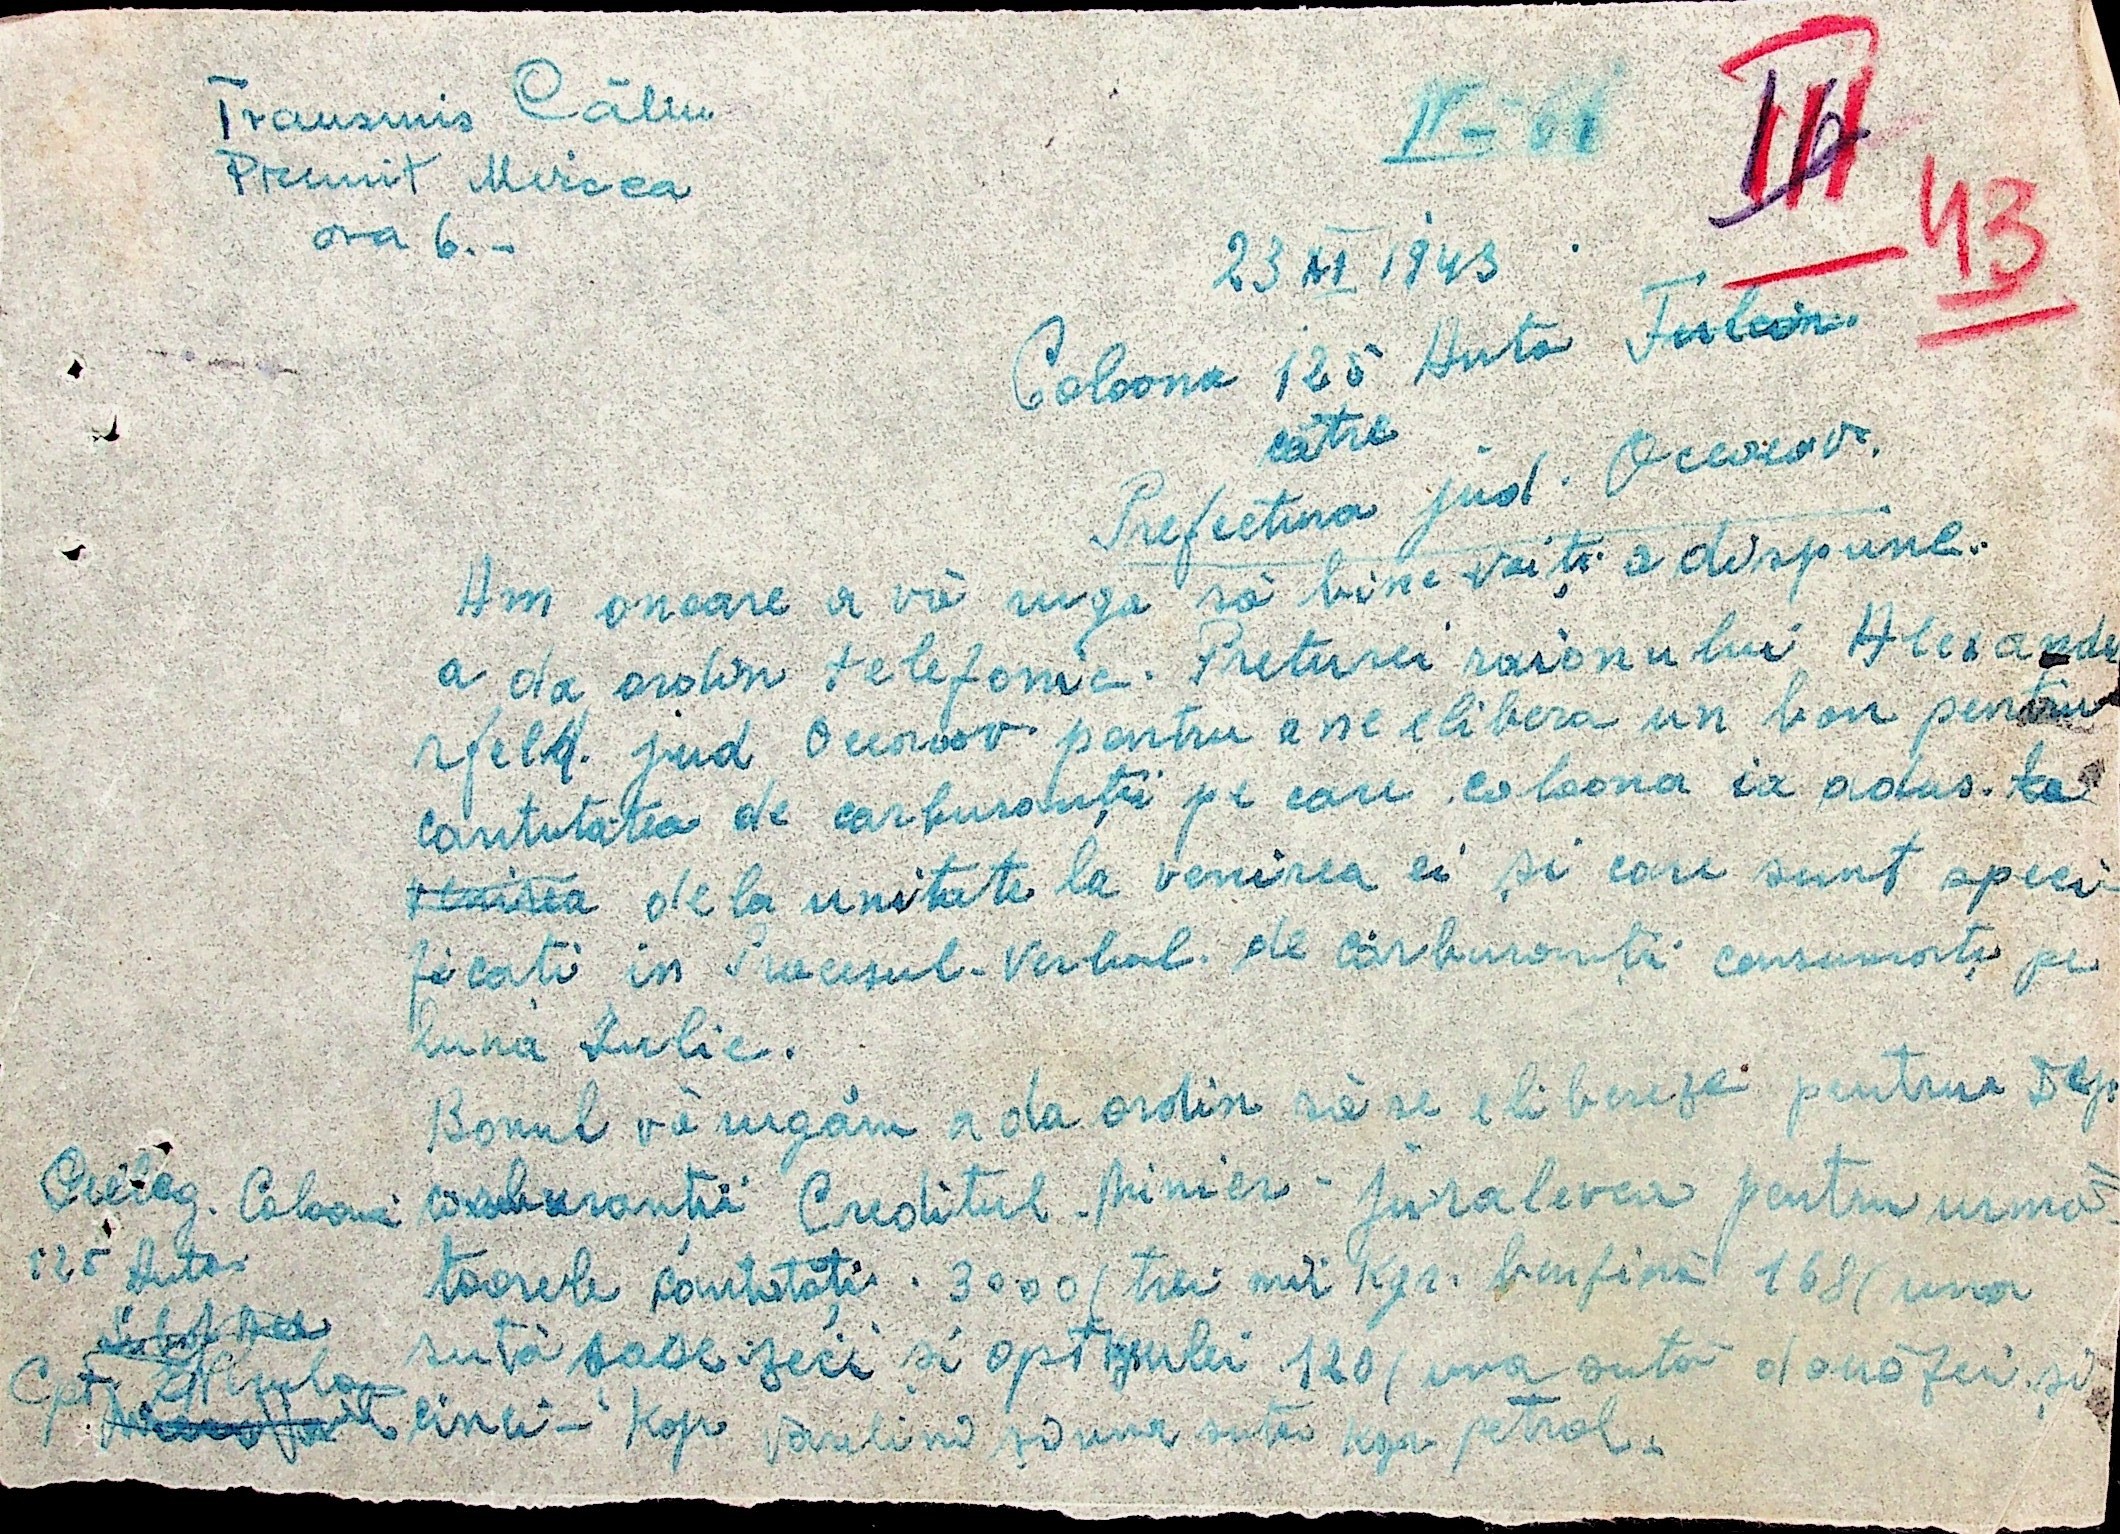 Transmis Călin
Premit Mircea
ora 6.-
III
43
23 XI 1943
Coloana 125 Auto
către
Prefectura jud. Oceacov.
Am onoare a vă ruga să bine voiți a dispune.
a da ordin telefonic. Preturei raionului Alexande
rfeld. jud Oceacov. pentru a ne elibera un bon pentru
cantitatea de carburanții pe care coloana ia adus. la
venirea de la unitate la venirea ei și care sunt speci-
ficati in Procesul-Verbal. de carburanții consumați pe
luna Iulie.
Bonul vă rugăm a da ordin să se elibereze pentru Dep
carburanții Creditul-Minier - pentru urmă-
toarele cantități. 3000 ( trei mii Kgr. 168 ( una
sută șase zeci și opt 120 ( una sută douăzeci și
cinci - Kgr și una suta kgr petrol.
Coloanei
125 Auto